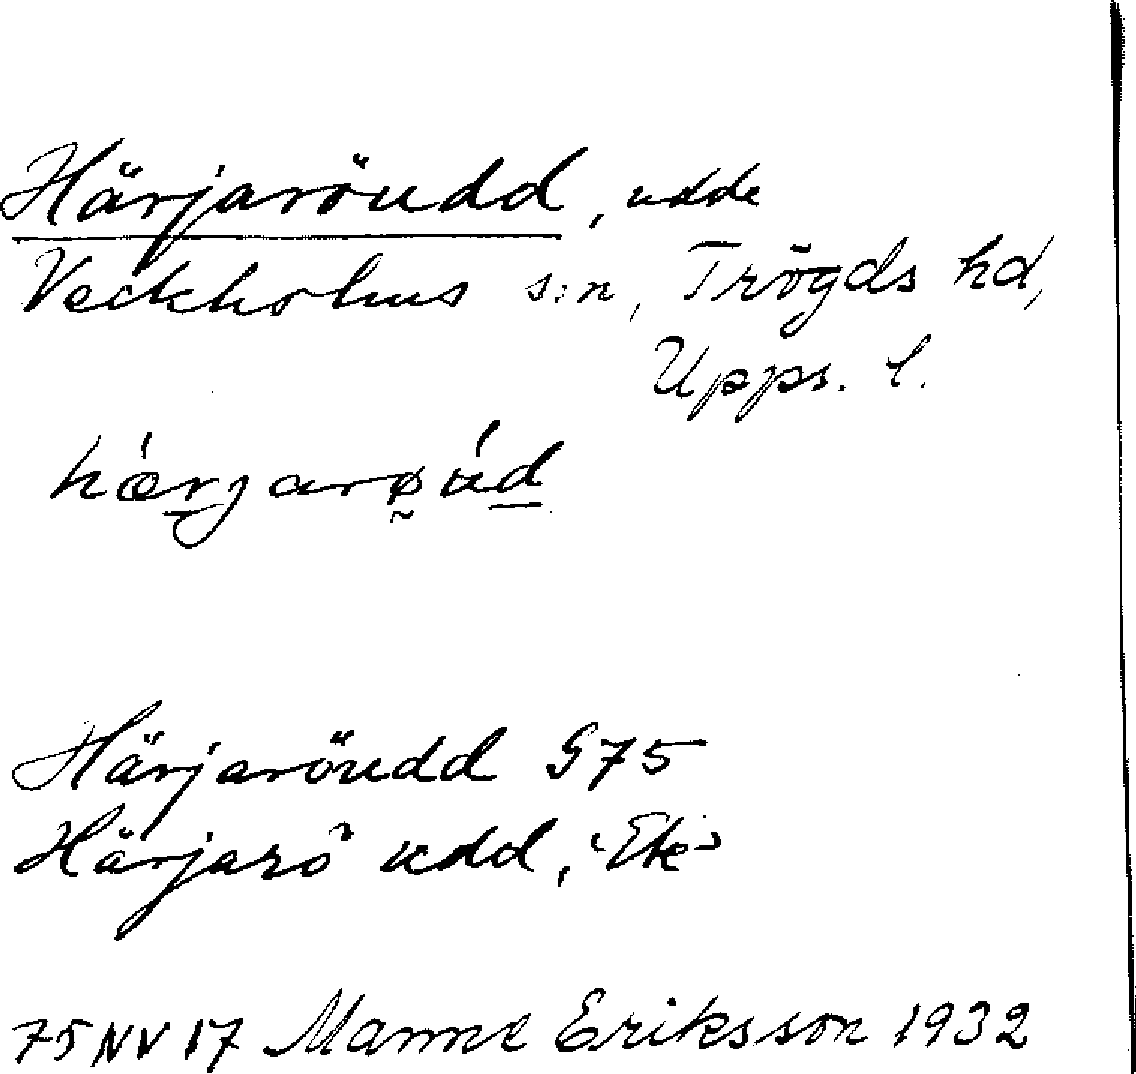 Härjaröudd, udde
Veckholms s:n, Trögds hd,
Upps. l.
hærjarøud
Härjaröudd G75
Härjarö udd, Ek
75 NV 17 Manne Eriksson 1932